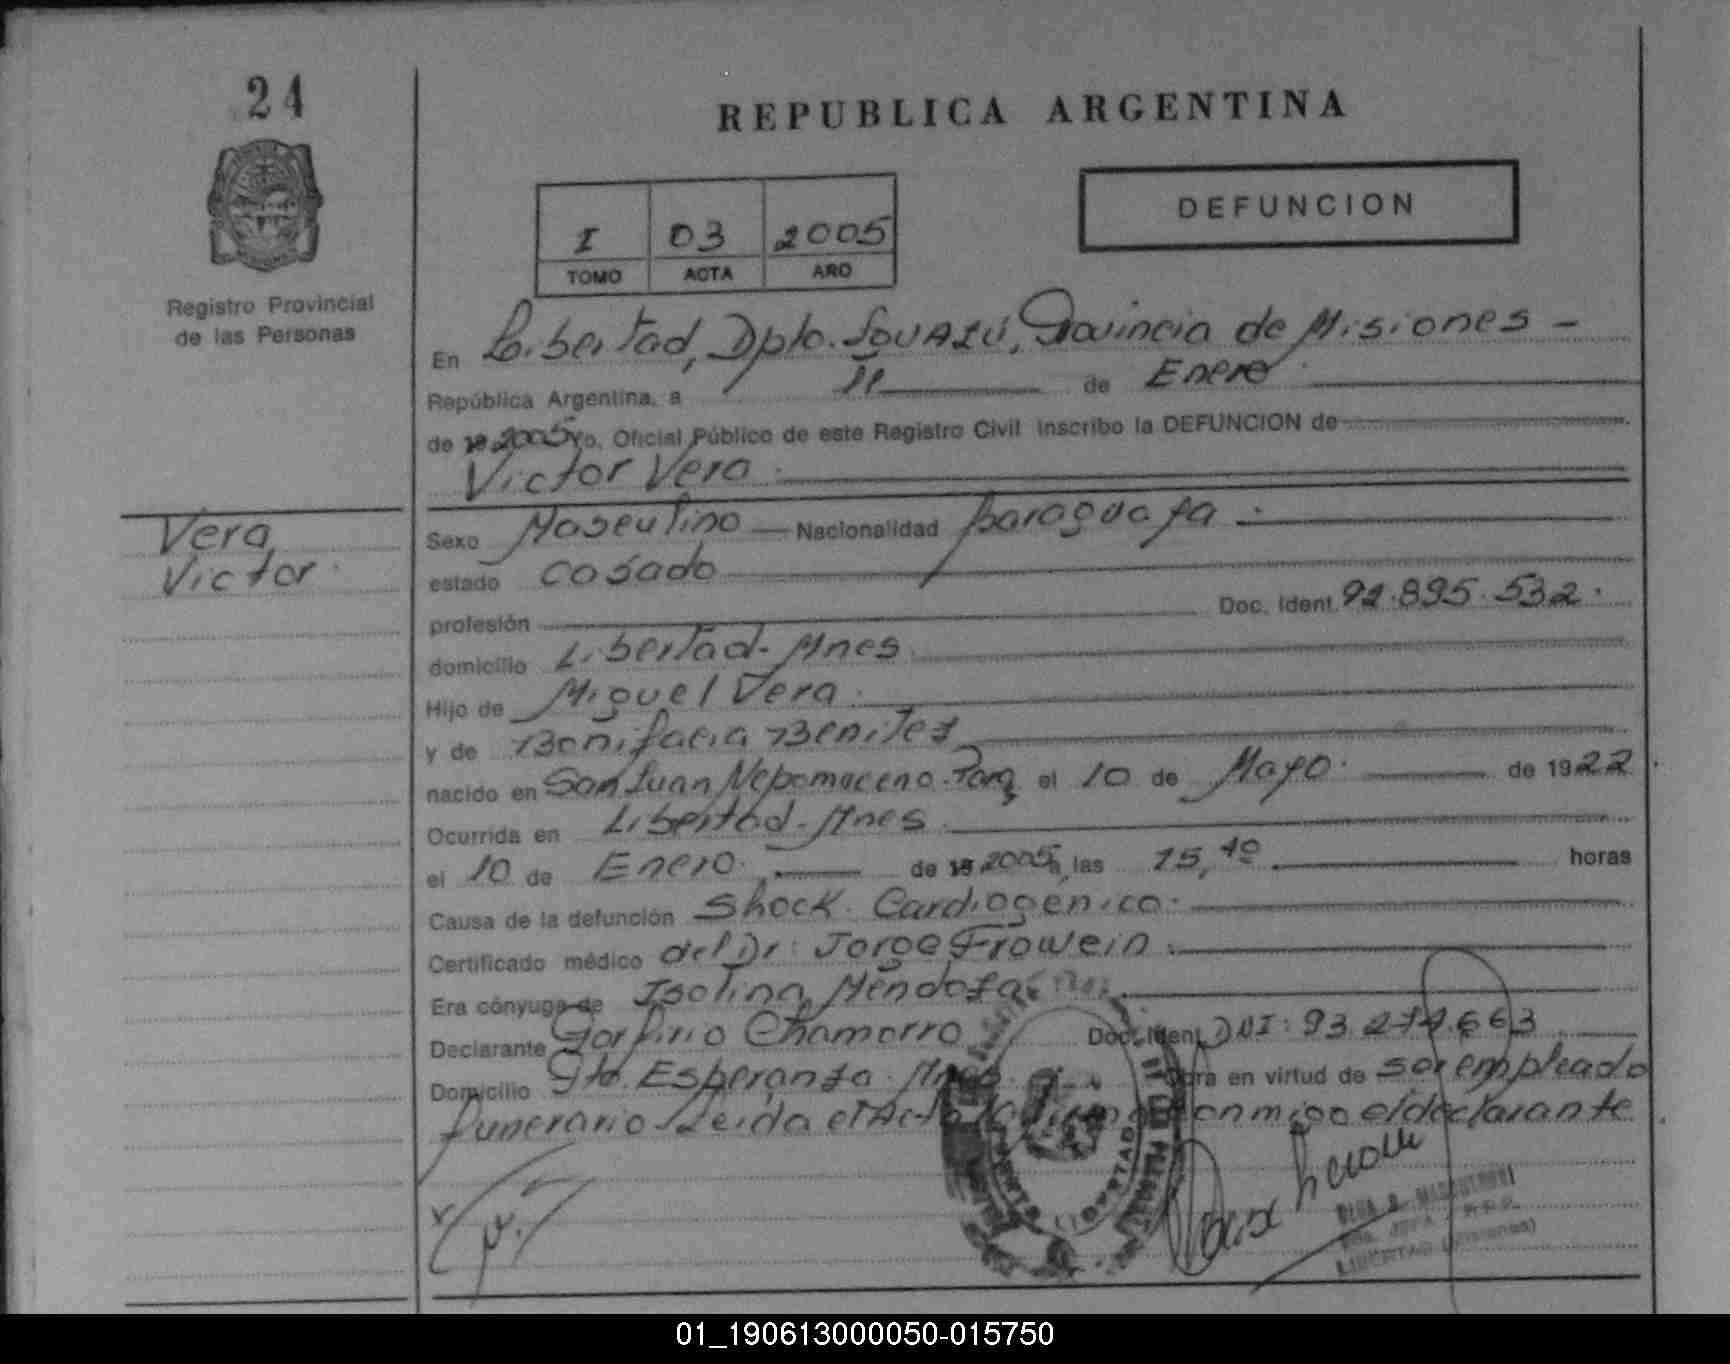 24
REPUBLICA ARGENTINA
DEFUNCION
I 03 2005
TOMO ACTA AÑO
Registro Provincial
de las Personas
En Libertad, Dpto. Iguazú, Provincia de Misiones -
República Argentina, a 11 de Enero
de 19 2005 Yo, Oficial Público de este Registro Civil inscribo la DEFUNCION de
Victor Vera
Vera
Victor
Sexo Masculino Nacionalidad paraguaya
estado casado
profesión Doc. Ident. 92.895.532.
domicilio Libertad-Mnes
Hijo de Miguel Vera
y de Bonifacia Benitez
nacido en San Juan Nepomuceno-Parg. el 10 de Mayo de 1922
Ocurrida en Libertad-Mnes
el 10 de Enero de 19 2005 a las 15,40 horas
Causa de la defunción Shock Cardiogénico
Certificado médico del Dr: Jorge Frowein
Era cónyuge de Isolina Mendoza
Declarante Porfirio Chamorro Doc. Ident. DNI: 93.279.663
Domicilio Pto. Esperanza-Mnes. Obra en virtud de ser empleado
funerario Leida el Acta conmigo el declarante
LIBERTAD (Misiones)
01_190613000050-015750